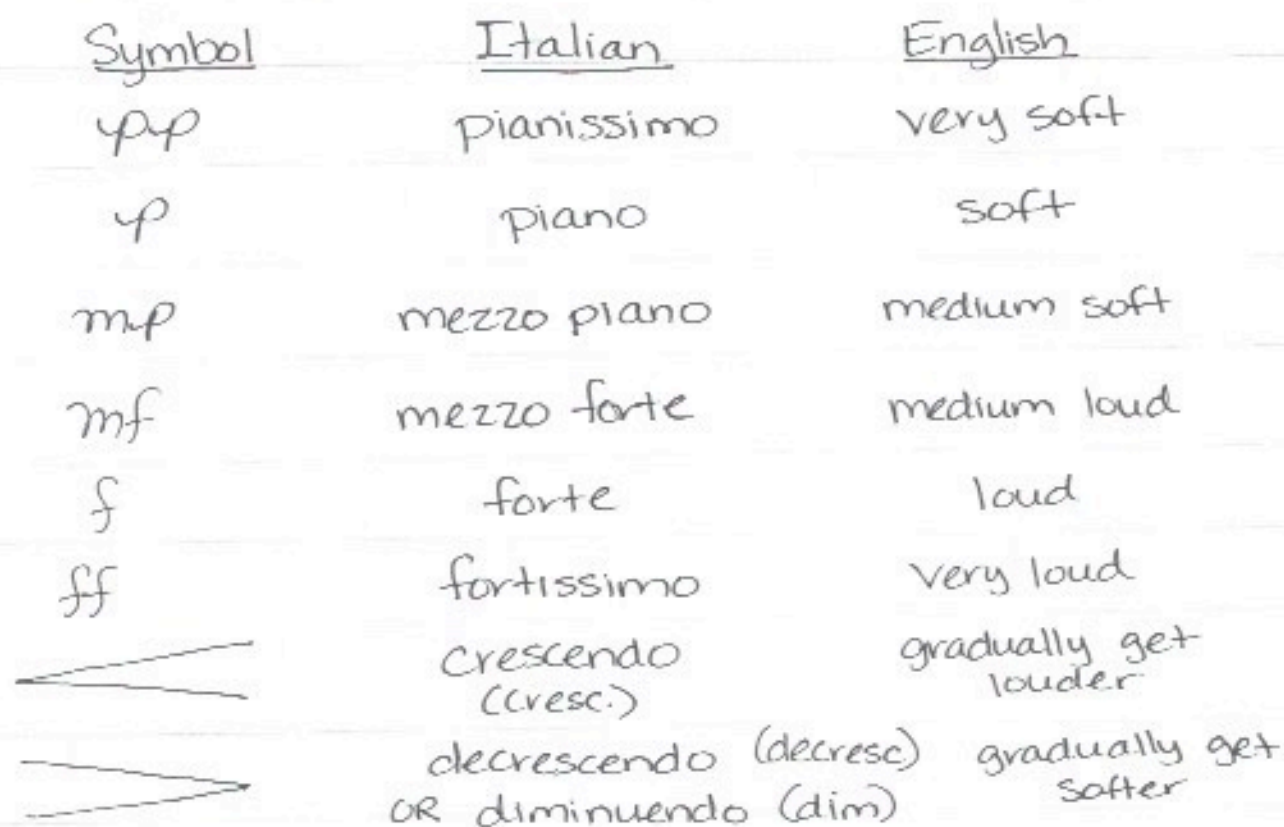 Symbol Italian English
pp pianissimo very soft
p piano soft
mp mezzo piano medium soft
mf mezzo forte medium loud
f forte loud
ff fortissimo very loud
crescendo gradually get
(cresc.) louder
decrescendo (decresc) gradually get
OR diminuendo (dim) softer